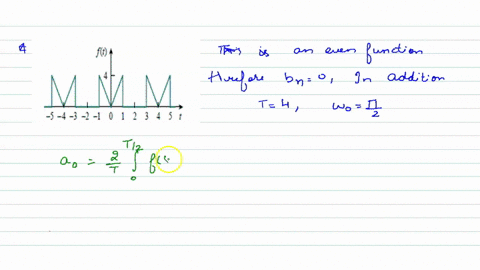 4
f(t)
4
-5 -4 -3 -2 -1 0 1 2 3 4 5 t
is an even function
Herefore bn = 0, In addition
T = 4, ω0 = Π/2
a0 = 2/T ∫0^T/2 f(t